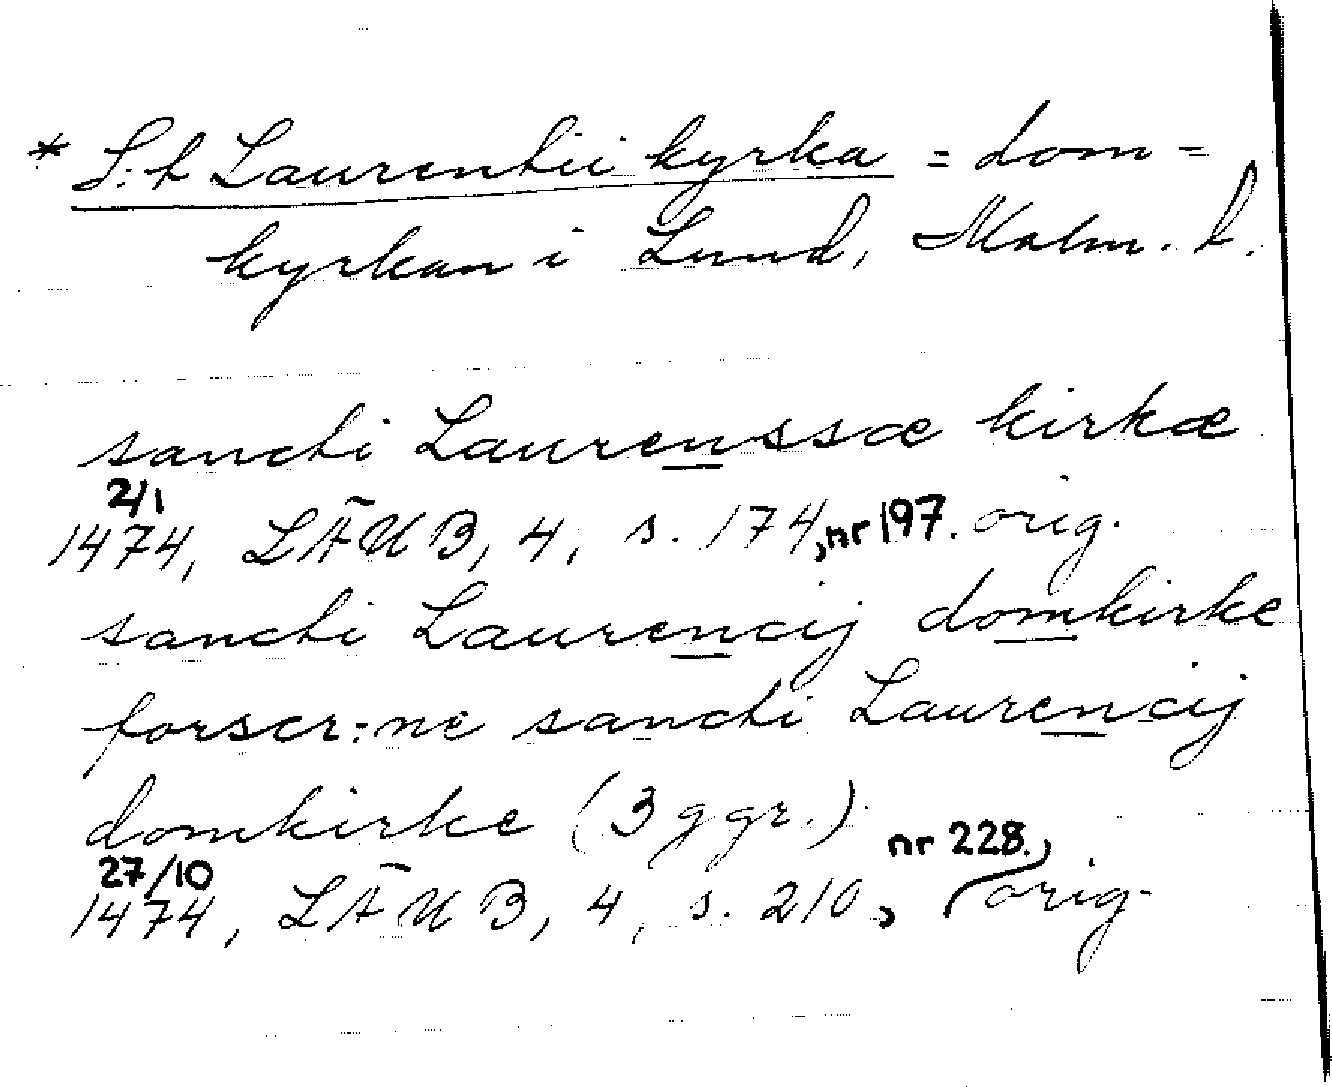 * S:t Laurentii kyrka = dom=
kyrkan i Lund, Malm. l.
sancti Laurenssæ kirkæ
2/1
1474, LÄUB, 4, s. 174, nr 197. orig.
sancti Laurencij domkirke
forscr:ne sancti Laurencij
domkirke (3 ggr.)
27/10 nr 228.,
1474, LÄUB, 4, s. 210, orig.